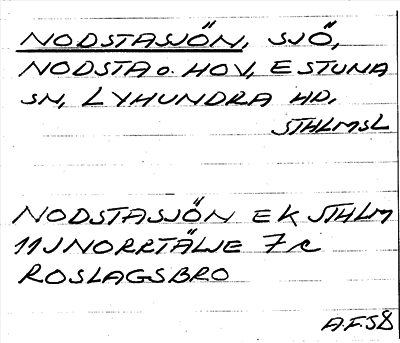 NODSTASJÖN, SJÖ,
NODSTA o. HOV, ESTUNA
SN, LYHUNDRA HD.
STHLMSL
NODSTASJÖN EK STHLM
11J NORRTÄLJE 7c
ROSLAGSBRO
A.F.58